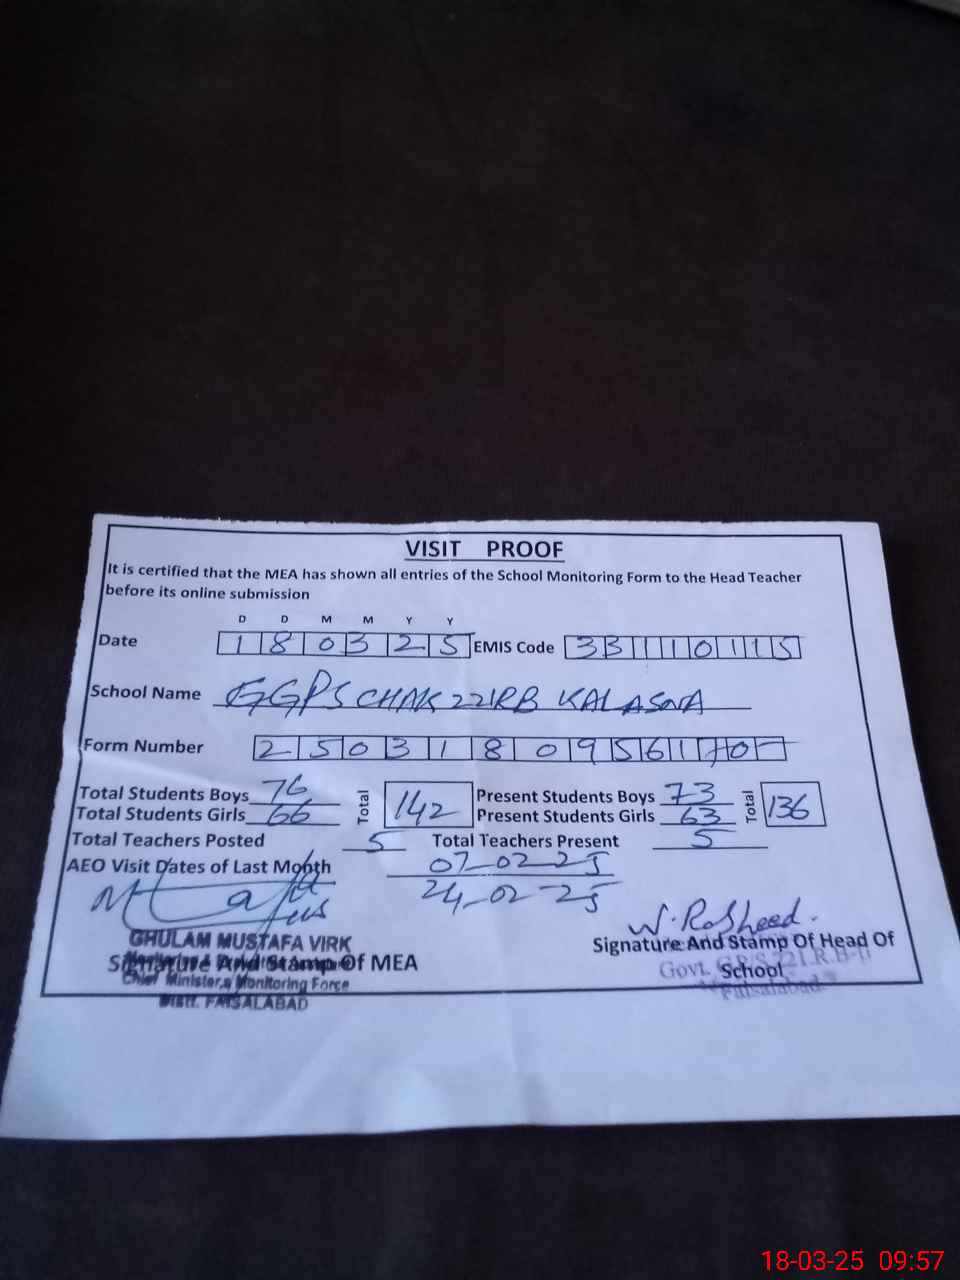 VISIT PROOF
It is certified that the MEA has shown all entries of the School Monitoring Form to the Head Teacher
before its online submission
D D M M Y Y
Date 1 8 0 3 2 5 EMIS Code 3 3 1 1 1 0 1 1 5
School Name GGPS CHAK 221RB KALASNA
Form Number 2 5 0 3 1 8 0 9 5 6 1
Total Students Boys 76 Total 142 Present Students Boys 73 Total 136
Total Students Girls 66 Present Students Girls 63
Total Teachers Posted 5 Total Teachers Present 5
AEO Visit Dates of Last Month 07-02-25
24-02-25
W. Rasheed.
GHULAM MUSTAFA VIRK
Signature And Stamp Of MEA
Chief Minister,s Monitoring Force
Distt. FAISALABAD
Signature And Stamp Of Head Of
School
Govt. 221.R.B-
Faisalabad
18-03-25 09:57